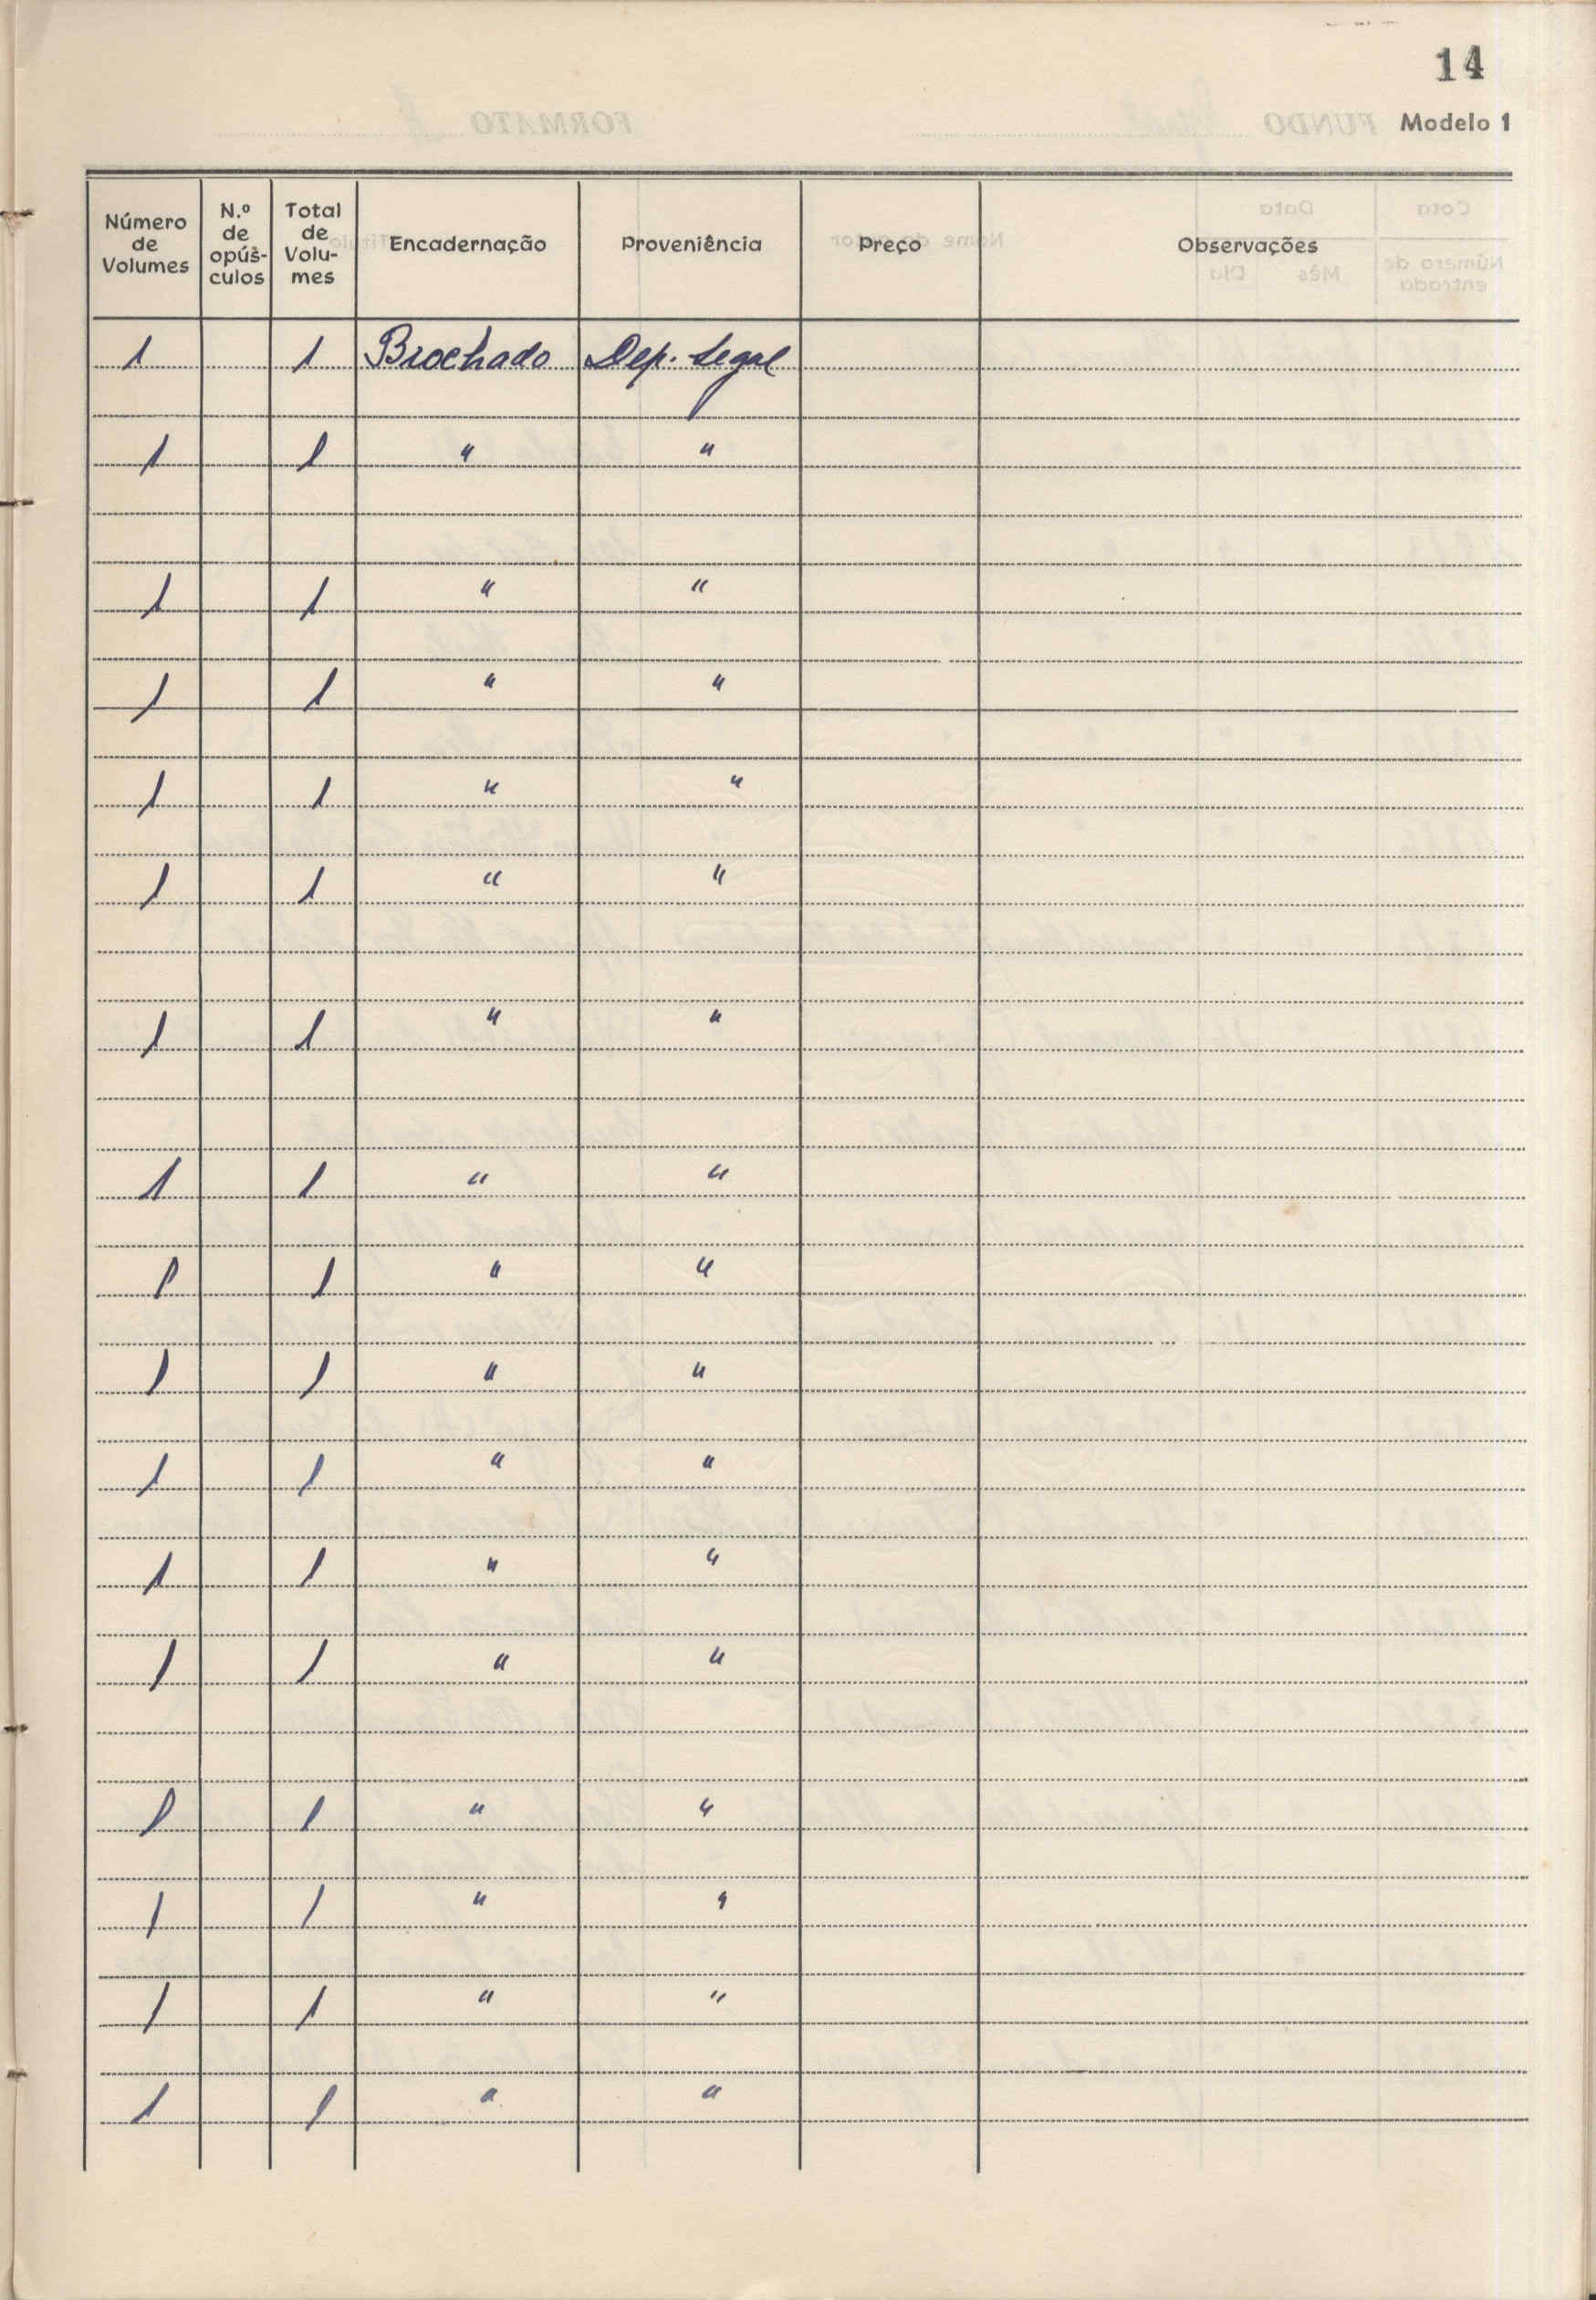 14
Modelo 1
Número de Volumes | N.º de opús-culos | Total de Volu-mes | Encadernação | Proveniência | Preço | Observações
1 | | 1 | Brochado | Dep. Legal
1 | | 1 | " | "
1 | | 1 | " | "
1 | | 1 | " | "
1 | | 1 | " | "
1 | | 1 | " | "
1 | | 1 | " | "
1 | | 1 | " | "
1 | | 1 | " | "
1 | | 1 | " | "
1 | | 1 | " | "
1 | | 1 | " | "
1 | | 1 | " | "
1 | | 1 | " | "
1 | | 1 | " | "
1 | | 1 | " | "
1 | | 1 | " | "